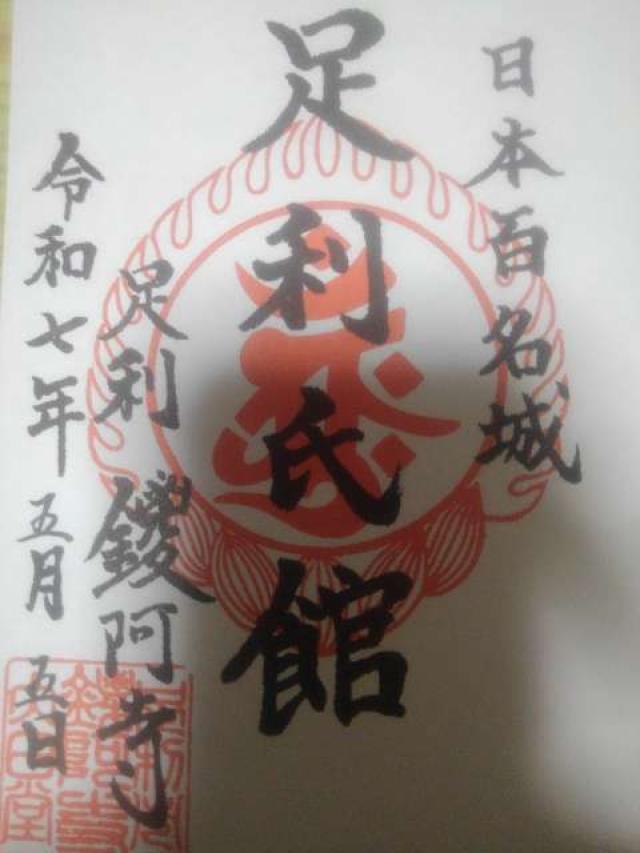 日本百名城
足利氏館
足利 鑁阿寺
令和七年五月五日